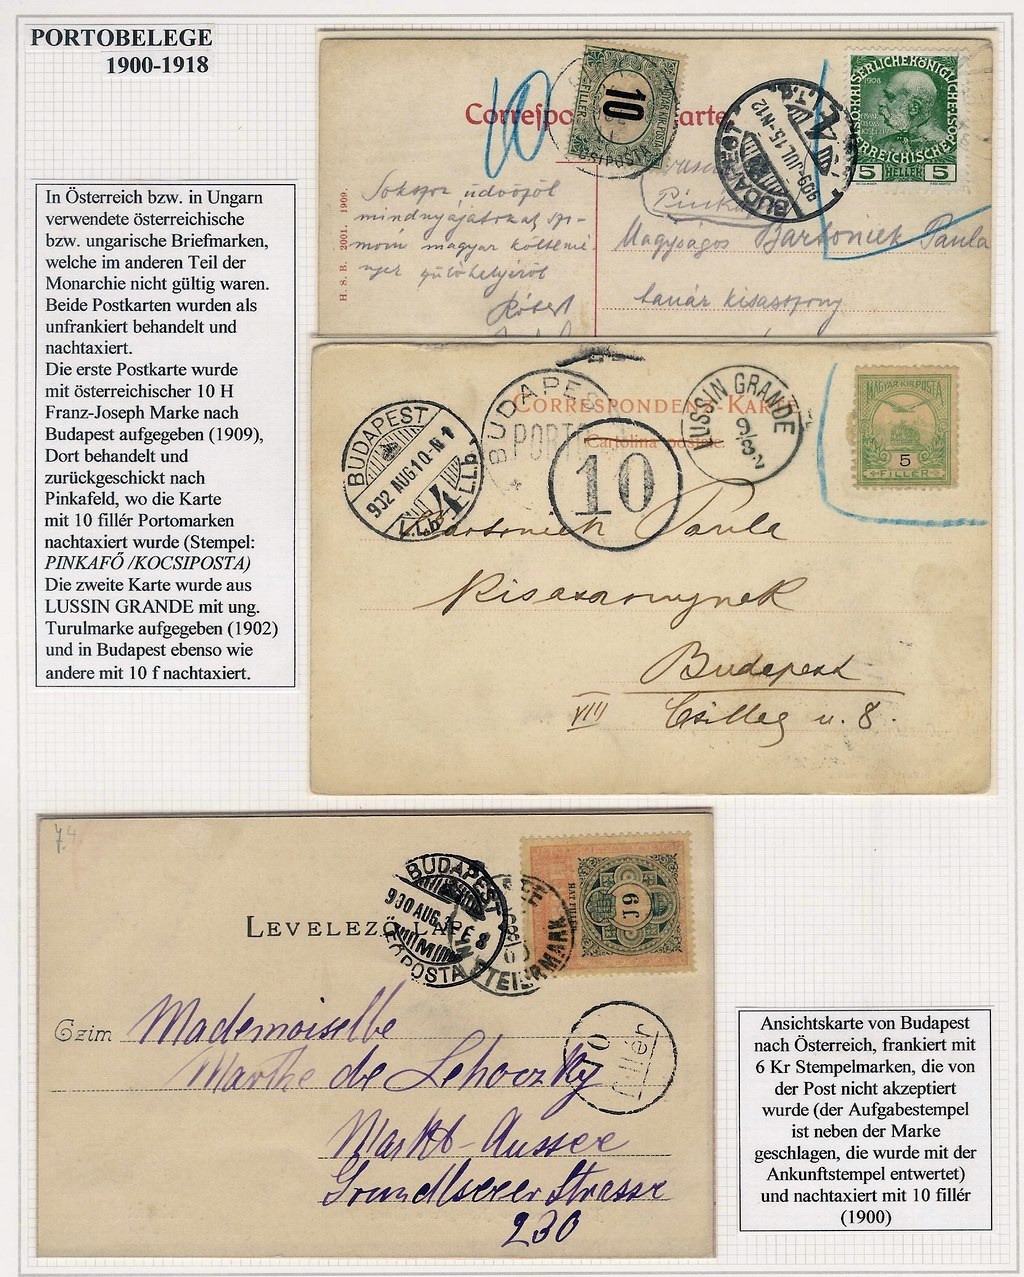 PORTOBELEGE
1900-1918
In Österreich bzw. in Ungarn
verwendete österreichische
bzw. ungarische Briefmarken,
welche im anderen Teil der
Monarchie nicht gültig waren.
Beide Postkarten wurden als
unfrankiert behandelt und
nachtaxiert.
Die erste Postkarte wurde
mit österreichischer 10 H
Franz-Joseph Marke nach
Budapest aufgegeben (1909),
Dort behandelt und
zurückgeschickt nach
Pinkafeld, wo die Karte
mit 10 fillér Portomarken
nachtaxiert wurde (Stempel:
PINKAFŐ /KOCSIPOSTA)
Die zweite Karte wurde aus
LUSSIN GRANDE mit ung.
Turulmarke aufgegeben (1902)
und in Budapest ebenso wie
andere mit 10 f nachtaxiert.
10
MAGYAR KIR. POSTA
10
FILLÉR
BUDAPEST
909 JUL.15.-N12
KAISERLICHE KÖNIGLICHE
ÖSTERREICHISCHE
1908
5 HELLER 5
H. S. B. 2001. 1909.
Sokszor üdvözöl
mindnyájatokat
magyar
Róbert
Nagyságos Bartoniek Paula
tanár kisasszony
CORRESPONDENZ-KARTE
Cartolina postale
BUDAPEST
902 AUG 10-N 1
4
BUDAPEST
PORTO
10
LUSSIN GRANDE
9/8
MAGYAR KIR. POSTA
5
FILLÉR
Bartoniek Paula
Kisasszonynak
Budapest
VIII Csillag u. 8.
74
LEVELEZŐ-LAP
BUDAPEST
900 AUG
IN STEIERMARK
10
fillér
Czim Mademoiselle
Marthe de Lehoczky
Markt-Aussee
Grundlseer Strasse
230
Ansichtskarte von Budapest
nach Österreich, frankiert mit
6 Kr Stempelmarken, die von
der Post nicht akzeptiert
wurde (der Aufgabestempel
ist neben der Marke
geschlagen, die wurde mit der
Ankunftstempel entwertet)
und nachtaxiert mit 10 fillér
(1900)